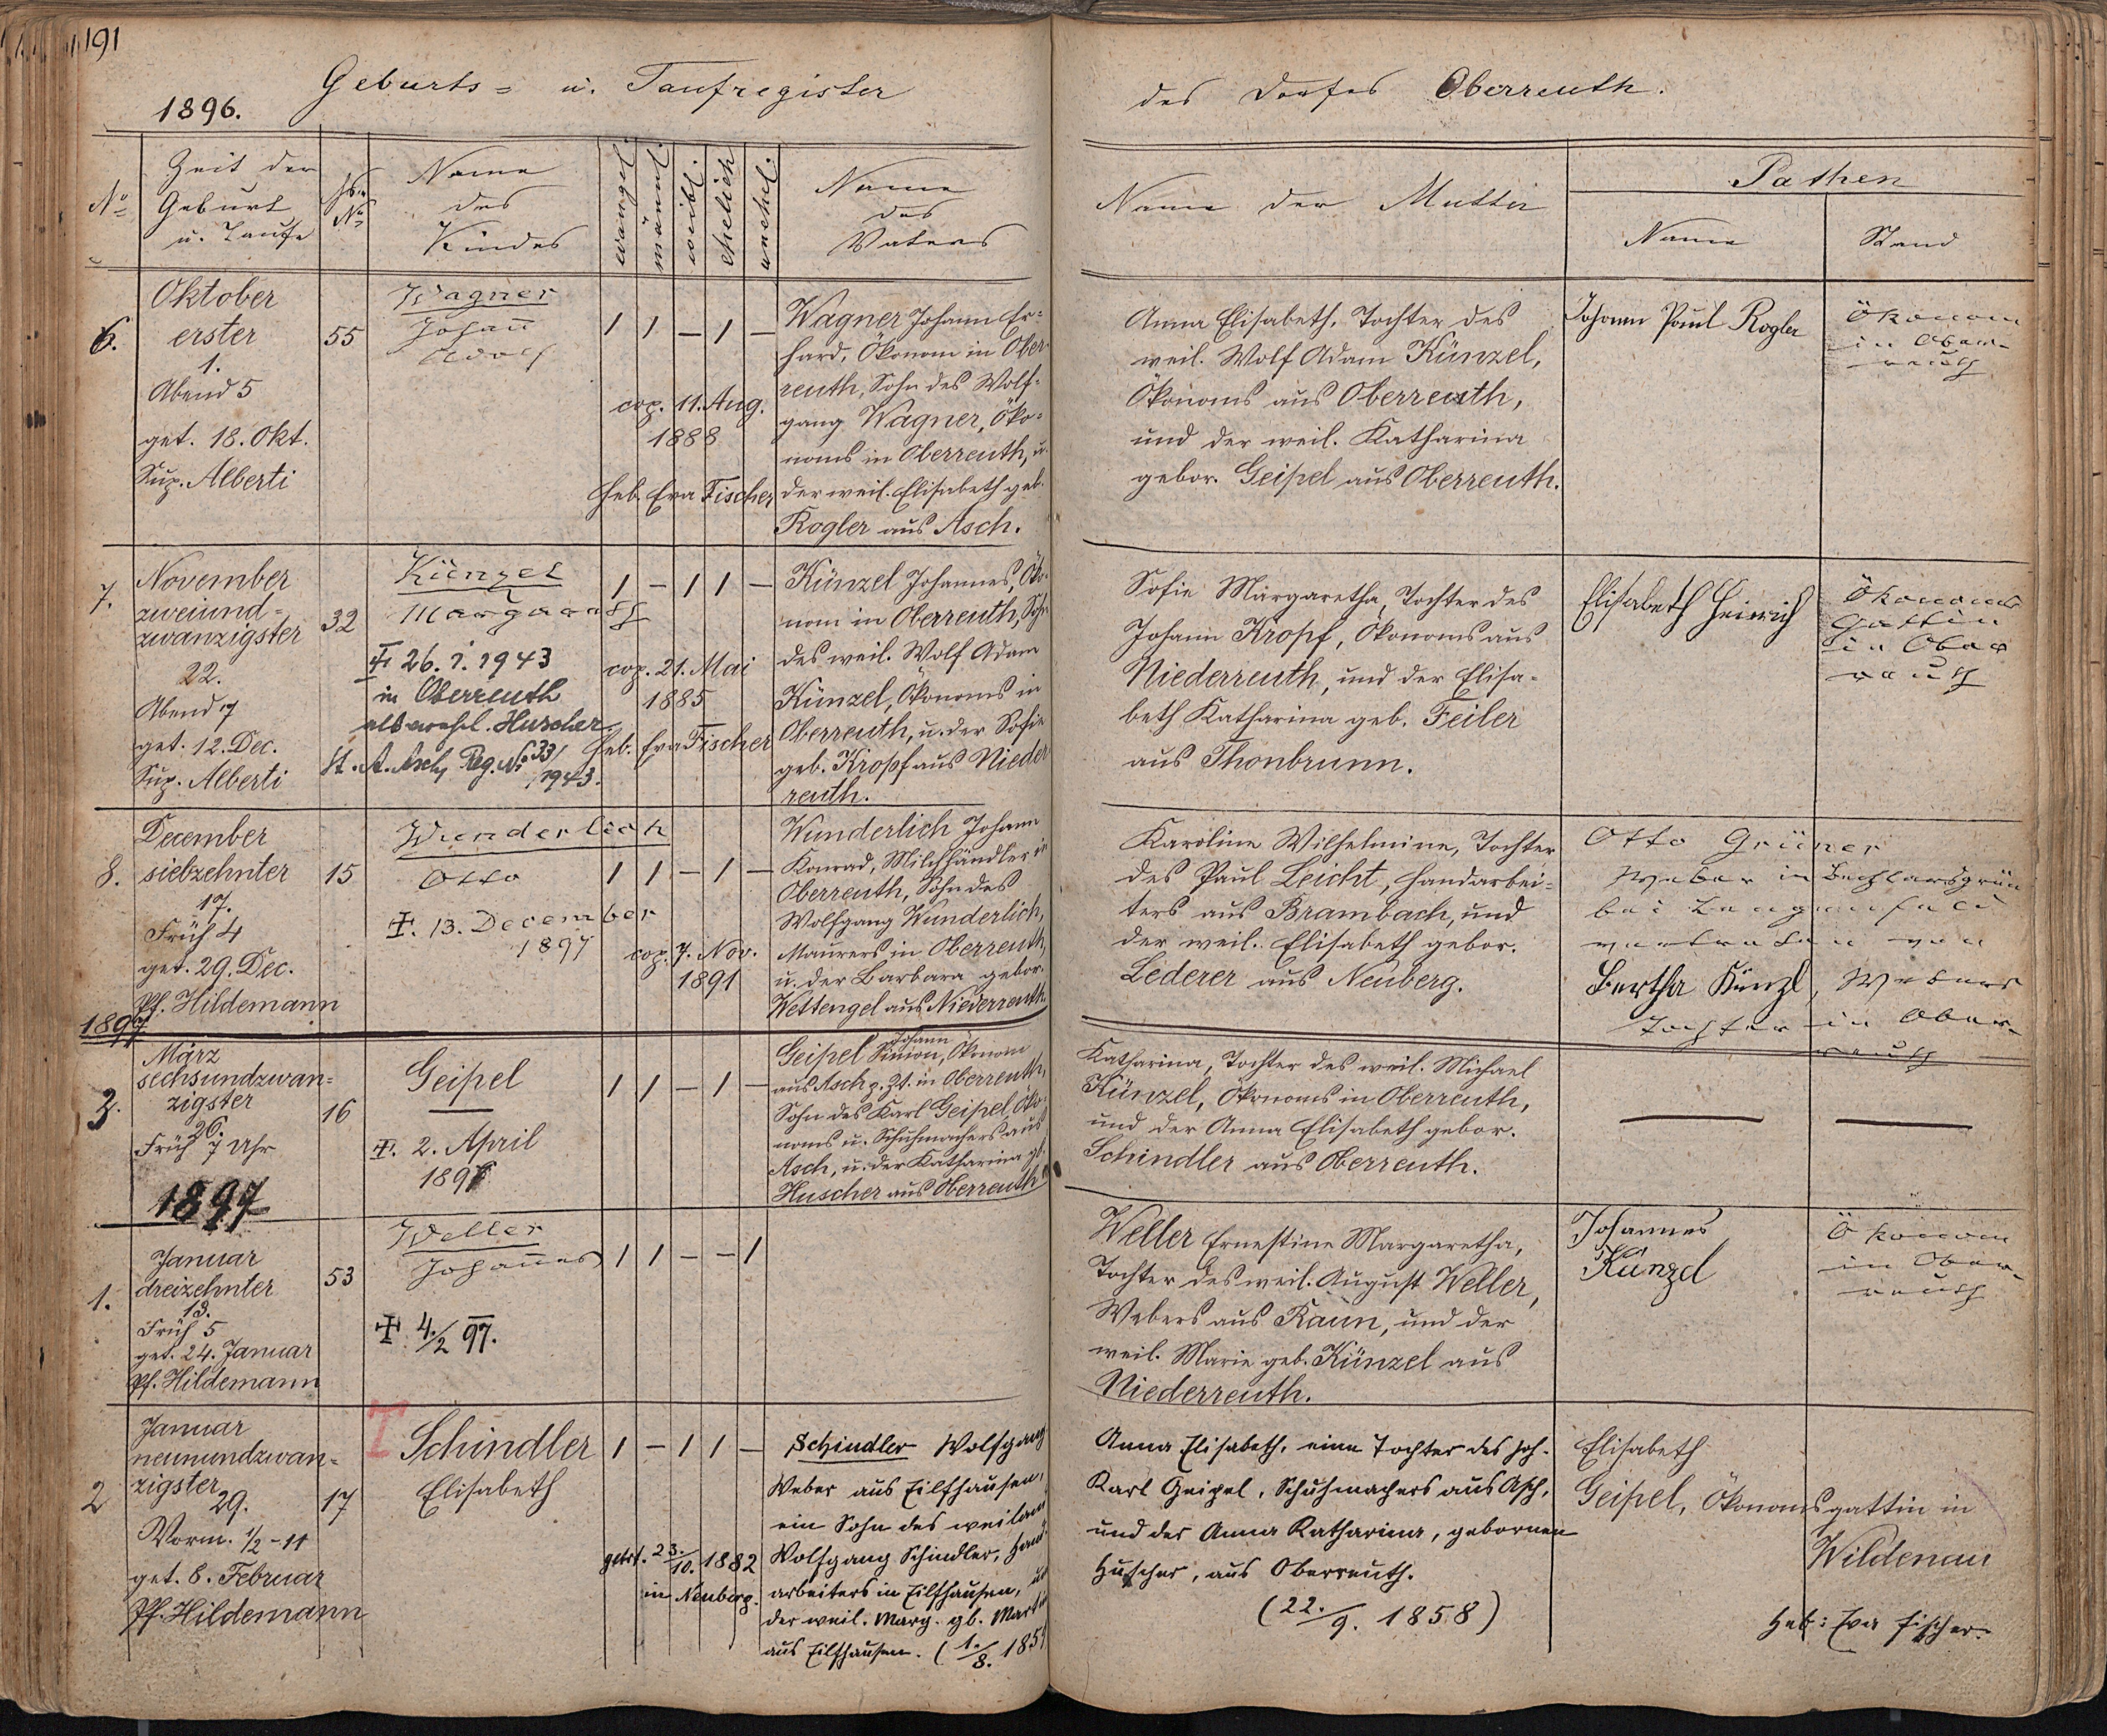 191
Geburts= u. Taufregister
des Dorfes Oberreuth.
1896.
No
Zeit der
Geburt
u. Taufe
Hs.
No
Name
des
Kindes
evangel.
männl.
weibl.
ehelich
unehel.
Name
des
Vaters
Name der Mutter
Pathen
Name
Stand
6.
Oktober
erster
1.
Abend 5
get. 18. Okt.
Sup. Alberti
55
Wagner
Johann
Adolf
1 1 – 1 –
cop. 11. Aug.
1888
Heb. Eva Fischer
Wagner Johann Er=
hard, Ökonom in Ober=
reuth, Sohn des Wolf=
gang Wagner, Öko=
noms in Oberreuth, u.
der weil. Elisabeth geb.
Rogler aus Asch.
Anna Elisabeth, Tochter des
weil. Wolf Adam Künzel,
Ökonoms aus Oberreuth,
und der weil. Katharina
gebor. Geipel aus Oberreuth.
Johann Paul Rogler
Ökonom
in Ober-
reuth
7.
November
zweiund=
zwanzigster
22.
Abend 7
get. 12. Dec.
Sup. Alberti
32
Künzel
Margareth
✠ 26. 1. 1943
in Oberreuth
als verehel. Huscher
St. A. Asch, Reg. No 33/
1943.
1 – 1 1 –
cop. 21. Mai
1885
Heb. Eva Fischer
Künzel Johannes, Öko=
nom in Oberreuth, Sohn
des weil. Wolf Adam
Künzel, Ökonoms in
Oberreuth, u. der Sofie
geb. Kropf aus Nieder
reuth.
Sofie Margaretha, Tochter des
Johann Kropf, Ökonoms aus
Niederreuth, und der Elisa=
beth Katharina geb. Feiler
aus Thonbrunn.
Elisabeth Heinrich
Ökonoms
Gattin
in Ober
reuth
8.
December
siebzehnter
17.
Früh 4
get. 29. Dec.
Pf. Hildemann
15
Wunderlich
Otto
✠. 13. December
1897
1 1 – 1 –
cop. 7. Nov.
1891
Wunderlich Johann
Konrad, Milchhändler in
Oberreuth, Sohn des
Wolfgang Wunderlich,
Maurers in Oberreuth,
u. der Barbara gebor.
Wettengel aus Niederreuth.
Karoline Wilhelmine, Tochter
des Paul Leicht, Handarbei=
ters aus Brambach, und
der weil. Elisabeth gebor.
Lederer aus Neuberg.
Otto Grüner
Weber in
bei
vertreten von
Bertha Künzl, Webers
Tochter in Ober-
reuth
1897
3.
März
sechsundzwan=
zigster
26.
Früh 7 Uhr
16
Geipel
✠. 2. April
1897
1 1 – 1 –
Johann
Geipel Simon, Ökonom
aus Asch z. Zt. in Oberreuth,
Sohn des Karl Geipel, Öko=
noms u. Schuhmachers aus
Asch, u. der Katharina gb.
Huscher aus Oberreuth
Katharina, Tochter des weil. Michael
Künzel, Ökonoms in Oberreuth,
und der Anna Elisabeth gebor.
Schindler aus Oberreuth.
1897
1.
Januar
dreizehnter
13.
Früh 5
get. 24. Januar
Pf. Hildemann
53
Weller
Johannes
✠ 4./2 97.
1 1 – – 1
Weller Ernestine Margaretha,
Tochter des weil. August Weller,
Webers aus Raun, und der
weil. Marie geb. Künzel aus
Niederreuth.
Johannes
Künzel
Ökonom
in Ober-
reuth
2
Januar
neunundzwan=
zigster
29.
Vorm. 1/2-11
get. 8. Februar
Pf. Hildemann
17
T
Schindler
Elisabeth
1 – 1 1 –
getr. 23./10. 1882
in Neuberg.
Schindler Wolfgang
Weber aus Eilfhausen,
ein Sohn des weiland
Wolfgang Schindler, Hand
arbeiters in Eilfhausen, u
der weil. Marg. gb. Martin
aus Eilfhausen. (1./8. 185
Anna Elisabeth, eine Tochter des Joh.
Karl Geipel, Schuhmachers aus Asch,
und der Anna Katharina, gebornen
Huscher, aus Oberreuth.
(22./9. 1858)
Elisabeth
Geipel, Ökonomsgattin in
Wildenau
Heb: Eva Fischer.